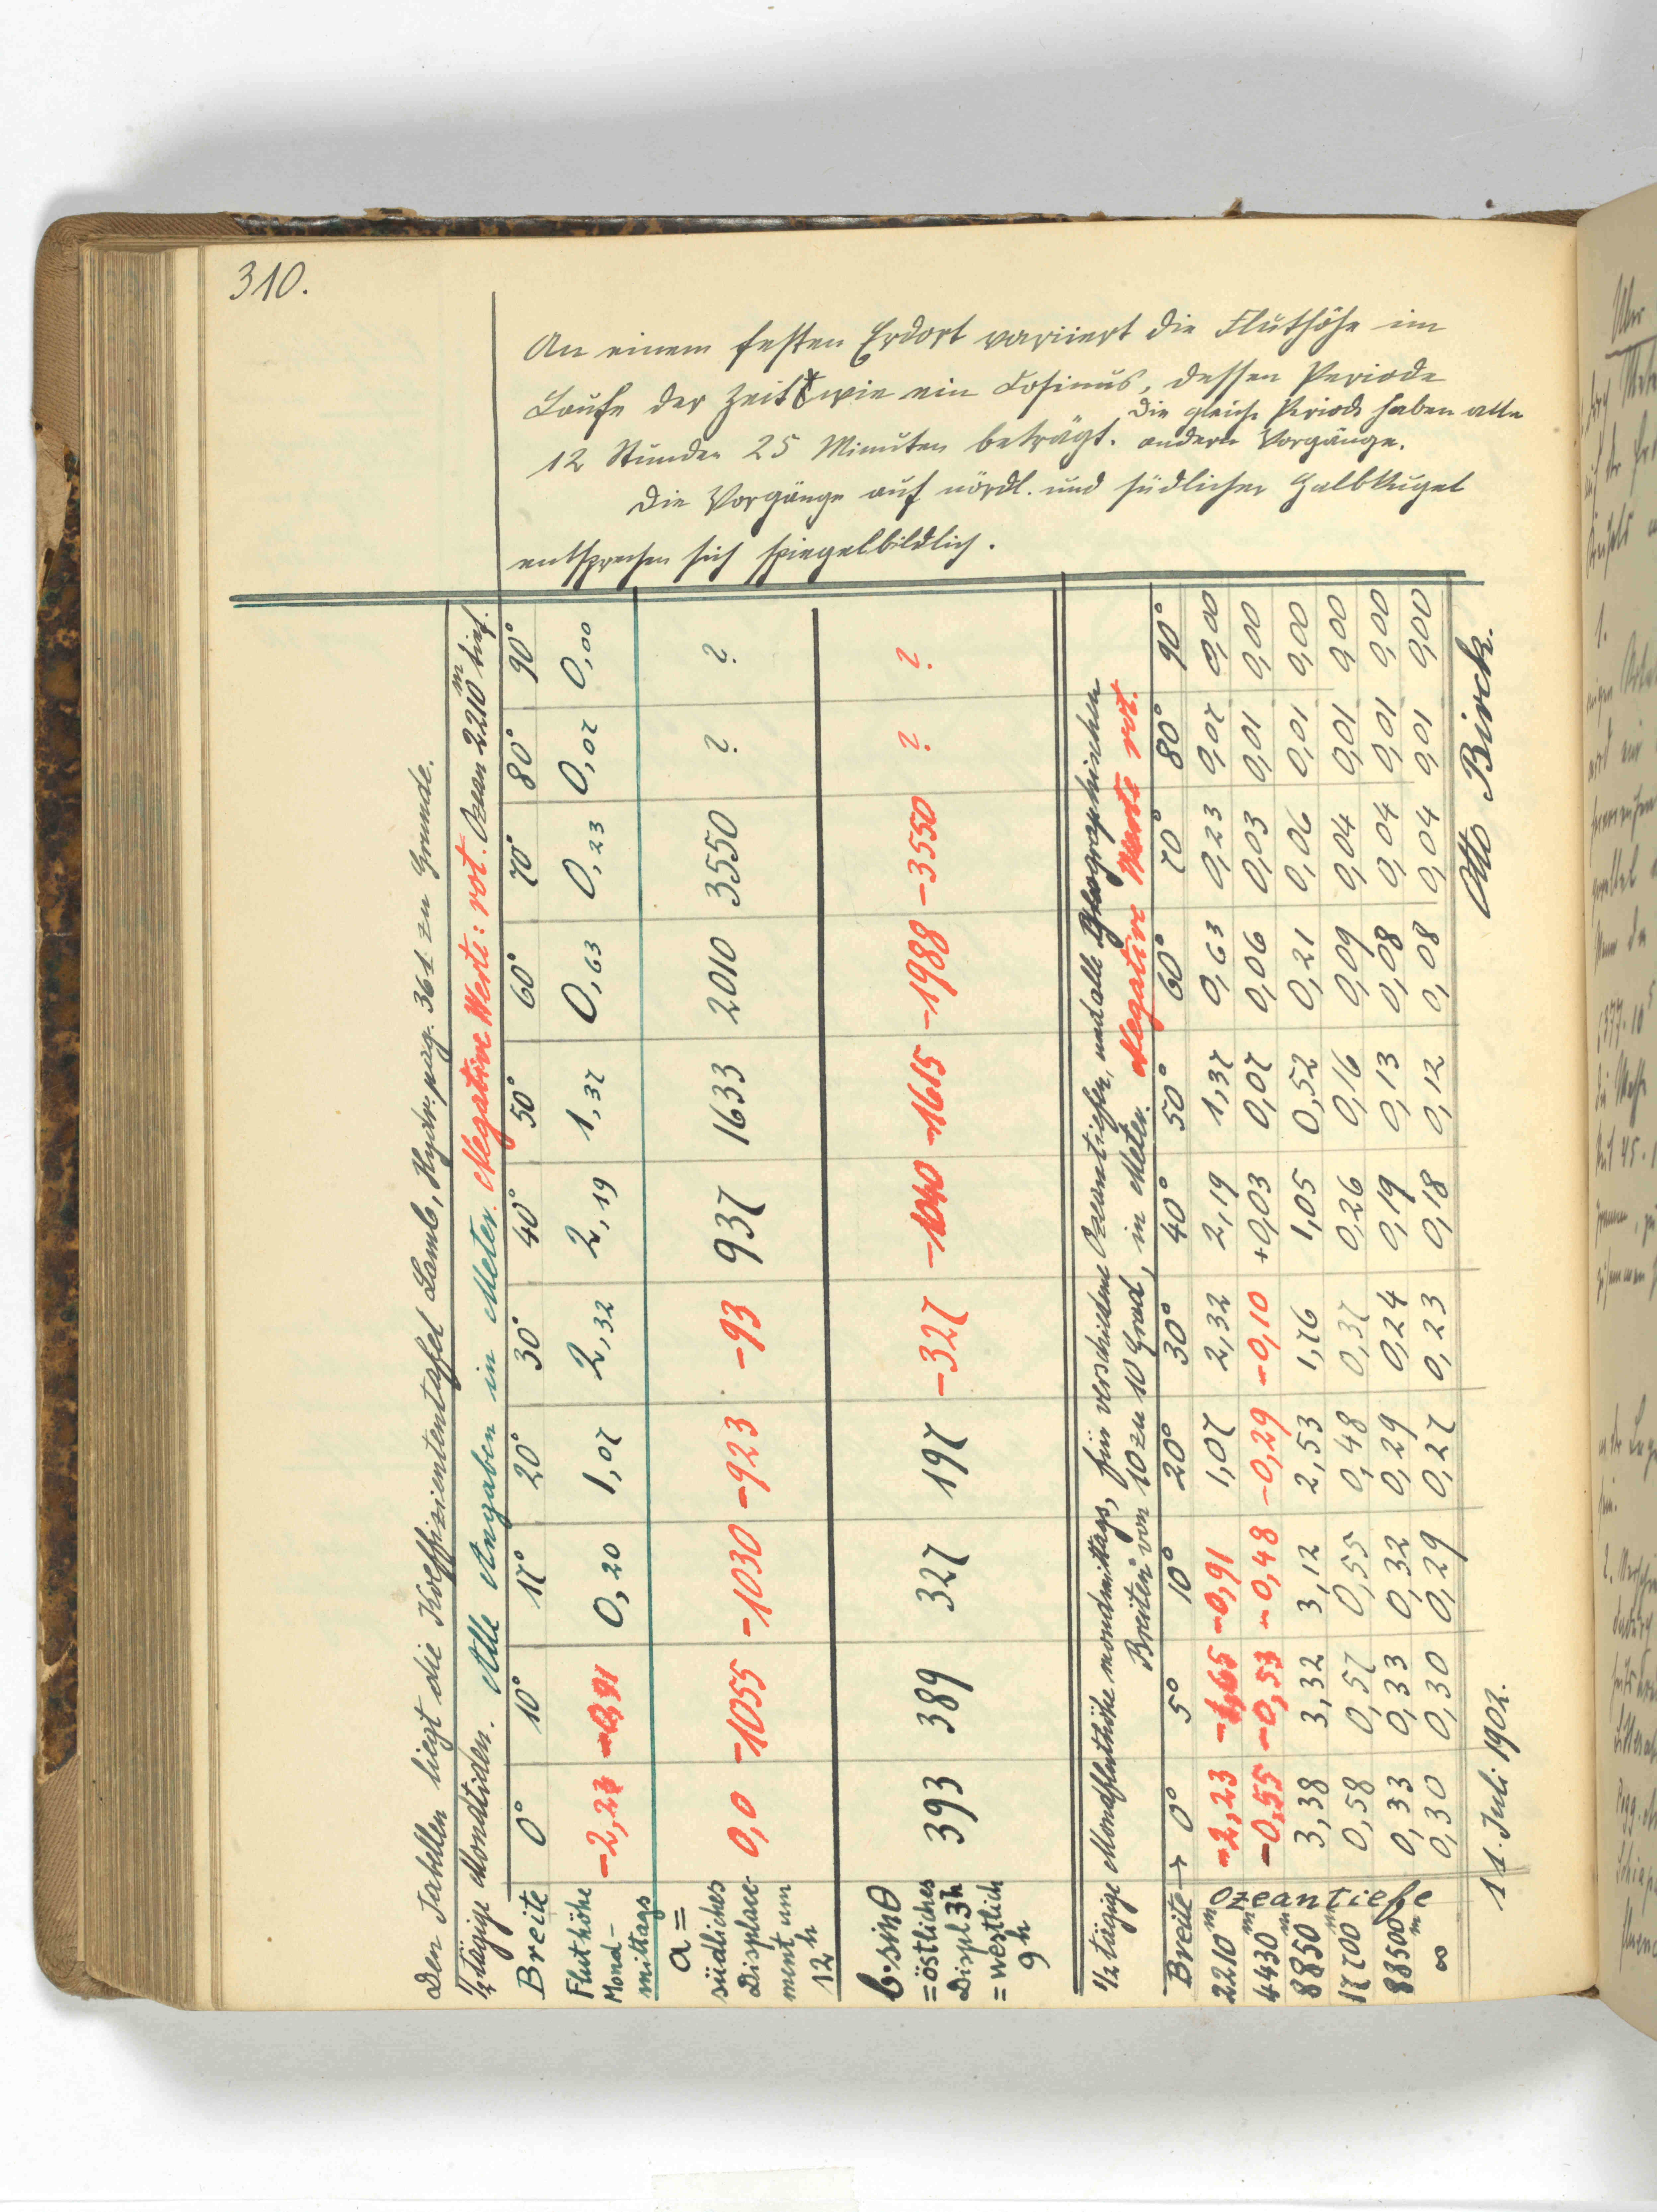 310.
An einem festen Erdort variiert die Fluthöhe im
Laufe der Zeit wie ein Cosinus, dessen Periode
12 Stunden 25 Minuten beträgt. Die gleiche Periode haben alle
andern Vorgänge.
Die Vorgänge auf nördl. und südlicher Halbkugel
entsprechen sich spiegelbildlich.
Den Tabellen liegt die Koeffiziententafel Lamb, Hydr. pag. 361 zu Grunde.
½ tägige Mondtiden. Alle Angaben in Meter. Negative Werte: rot. Ozean 2210 m tief.
Breite 0° 10° 17° 20° 30° 40° 50° 60° 70° 80° 90°
Fluthöhe Mond-mittags -2,23 -0,91 0,20 1,07 2,32 2,19 1,37 0,63 0,23 0,07 0,00
a = südliches Displacement um 12 h 0,0 -1055 -1030 -923 -93 937 1633 2010 3550 ? ?
b·sinθ = östliches Displ 3h = westlich 9h 393 389 327 197 -327 -1040 -1615 -1988 -3550 ? ?
½ tägige Mondfluthöhe mondmittags, für verschiedene Ozeantiefen, und alle Geographischen
Breiten von 10 zu 10 Grad, in Meter. Negative Werte rot.
Breite → 0° 5° 10° 20° 30° 40° 50° 60° 70° 80° 90°
Ozeantiefe
2210 m -2,23 -1,65 -0,91 1,07 2,32 2,19 1,37 0,63 0,23 0,07 0,00
4430 m -0,55 -0,53 -0,48 -0,29 -0,10 +0,03 0,07 0,06 0,03 0,01 0,00
8850 m 3,38 3,32 3,12 2,53 1,76 1,05 0,52 0,21 0,06 0,01 0,00
17700 m 0,58 0,57 0,55 0,48 0,37 0,26 0,16 0,09 0,04 0,01 0,00
88500 m 0,33 0,33 0,32 0,29 0,24 0,19 0,13 0,08 0,04 0,01 0,00
∞ 0,30 0,30 0,29 0,27 0,23 0,18 0,12 0,08 0,04 0,01 0,00
11. Juli 1902. Otto Birck.